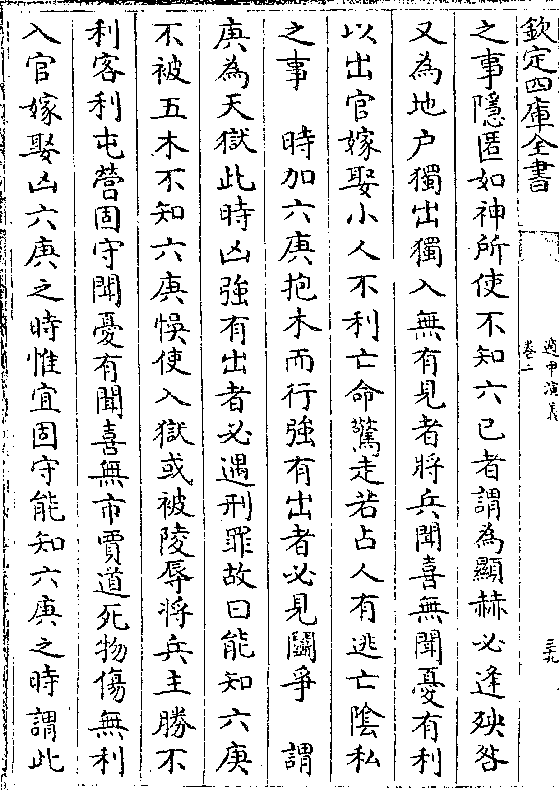 欽定四庫全書
遁甲演義
卷二
三九
之事隱匿如神所使不知六己者謂為顯赫必逢殃咎
又為地户獨出獨入無有見者將兵聞喜無聞憂有利
以出官嫁娶小人不利亡命驚走若占人有逃亡陰私
之事　時加六庚抱木而行強有出者必見鬭爭　謂
庚為天獄此時凶強有出者必遇刑罪故曰能知六庚
不被五木不知六庚悞使入獄或被陵辱將兵主勝不
利客利屯營固守聞憂有聞喜無市賈道死物傷無利
入官嫁娶凶六庚之時惟宜固守能知六庚之時謂此